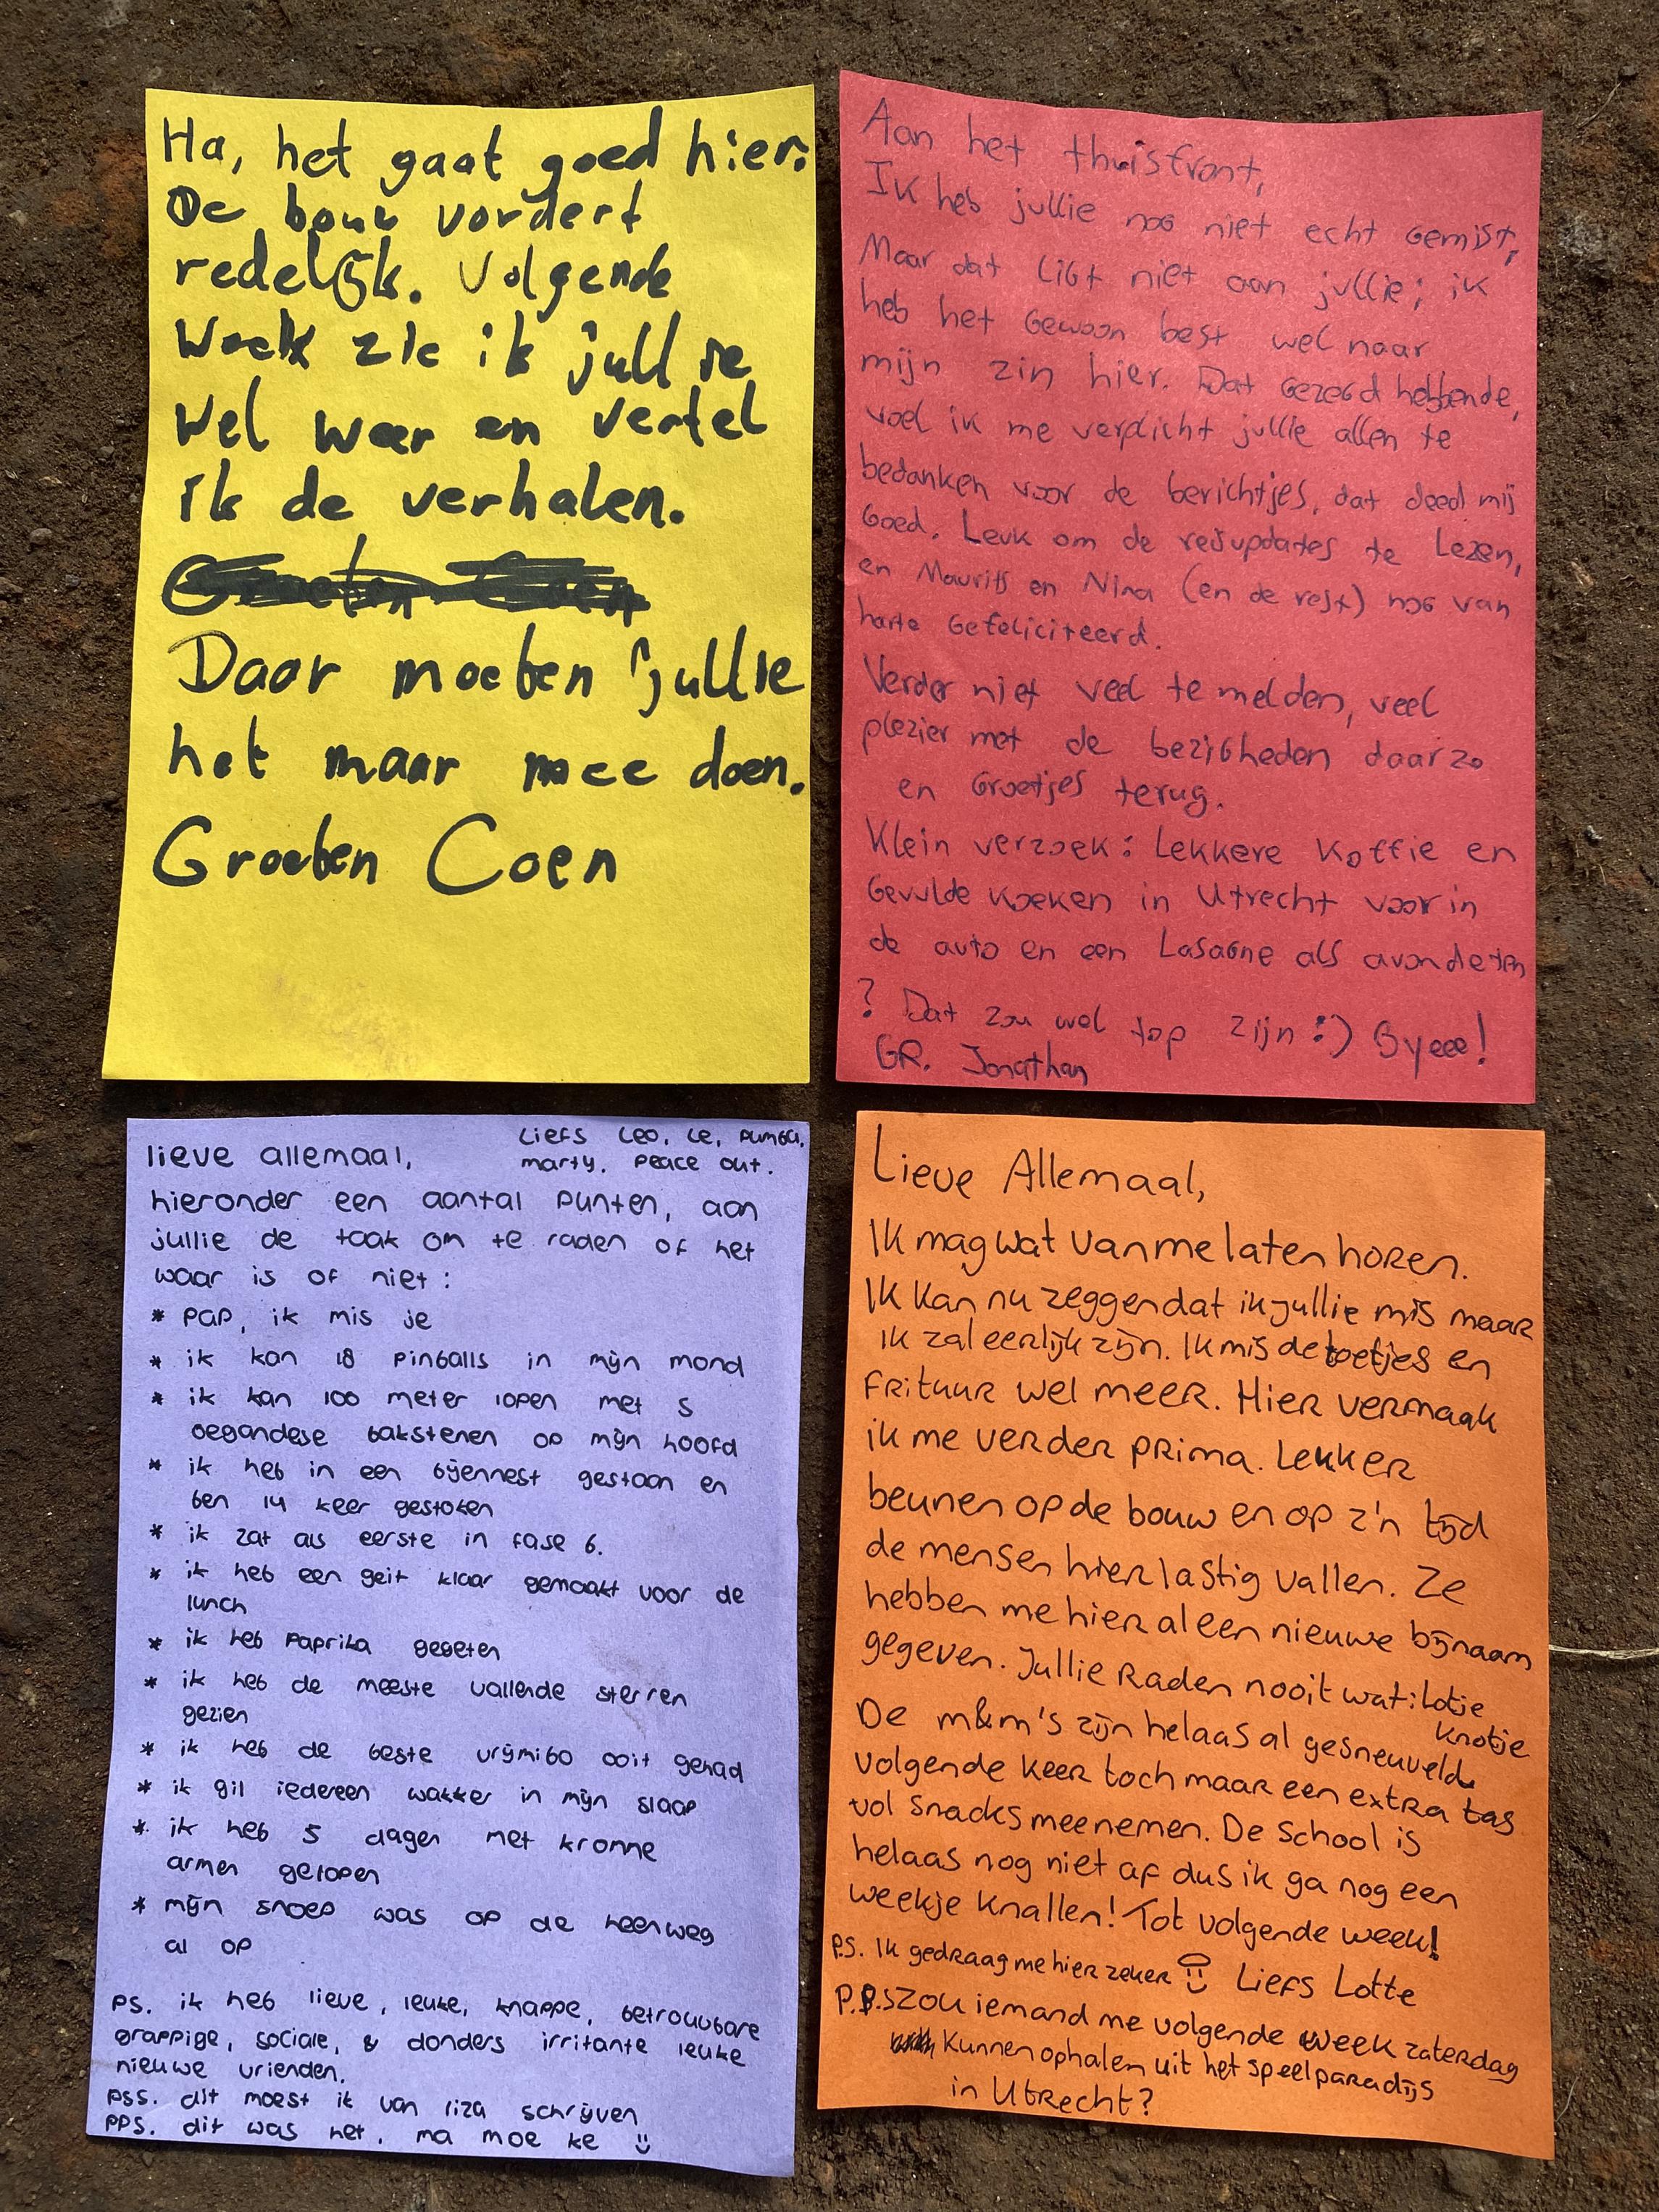 Ha, het gaat goed hier.
De bouw vordert
redelijk. Volgende
week zie ik jullie
wel weer en vertel
ik de verhalen.
Groeten Coen
Daar moeten jullie
het maar mee doen.
Groeten Coen
Aan het thuisfront,
Ik heb jullie nog niet echt gemist,
Maar dat ligt niet aan jullie; ik
heb het gewoon best wel naar
mijn zin hier. Dat gezegd hebbende,
voel ik me verplicht jullie allen te
bedanken voor de berichtjes, dat deed mij
goed. Leuk om de reisupdates te lezen,
en Maurits en Nina (en de rest) nog van
harte gefeliciteerd.
Verder niet veel te melden, veel
plezier met de bezigheden daarzo
en groetjes terug.
Klein verzoek: Lekkere koffie en
gevulde koeken in Utrecht voor in
de auto en een Lasagne als avondeten
? Dat zou wel top zijn :) Byeee!
GR. Jonathan
lieve allemaal,
Liefs Leo, Le, Pumba,
marty. Peace out.
hieronder een aantal punten, aan
jullie de taak om te raden of het
waar is of niet:
* pap, ik mis je
* ik kan 18 pinballs in mijn mond
* ik kan 100 meter lopen met 5
oegandese bakstenen op mijn hoofd
* ik heb in een bijennest gestaan en
ben 14 keer gestoken
* ik zat als eerste in fase 6.
* ik heb een geit klaar gemaakt voor de
lunch
* ik heb paprika gegeten
* ik heb de meeste vallende sterren
gezien
* ik heb de beste vrijmibo ooit gehad
* ik gil iedereen wakker in mijn slaap
* ik heb 5 dagen met kromme
armen gelopen
* mijn snoep was op de heenweg
al op
PS. ik heb lieve, leuke, knappe, betrouwbare
grappige, sociale, & donders irritante leuke
nieuwe vrienden.
PSS. dit moest ik van liza schrijven
PPS. dit was het, ma moe ke
Lieve Allemaal,
Ik mag wat van me laten horen.
Ik kan nu zeggen dat ik jullie mis maar
ik zal eerlijk zijn. Ik mis de toetjes en
frituur wel meer. Hier vermaak
ik me verder prima. Lekker
beunen op de bouw en op z'n tijd
de mensen hier lastig vallen. Ze
hebben me hier al een nieuwe bijnaam
gegeven. Jullie raden nooit wat: Lotje
Knotje
De m&m's zijn helaas al gesneuveld.
volgende keer toch maar een extra tas
vol snacks meenemen. De school is
helaas nog niet af dus ik ga nog een
weekje knallen! Tot volgende week!
P.S. Ik gedraag me hier zeker Liefs Lotte
P.P.S Zou iemand me volgende week zaterdag
kunnen ophalen uit het speelparadijs
in Utrecht?